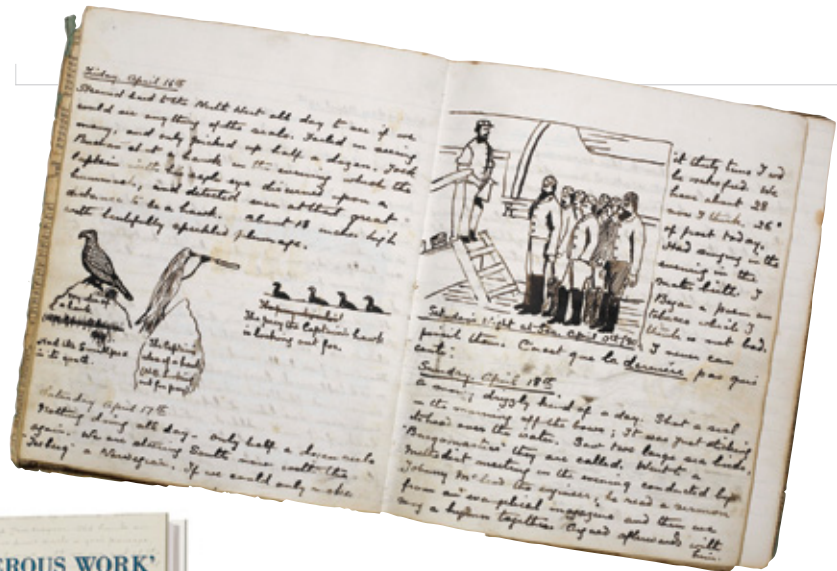 Friday April 16th
Steamed hard to the North West all day to see if we
could see anything of the seals. Failed in seeing
many, and only picked up half a dozen. Took
at a hawk in the evening which the
Captain with his eagle eye discerned upon a
hummock, and detected even at that great
distance to be a hawk. About 18 inches high
with beautifully speckled plumage.
of a hawk
The Captain's
idea of a hawk
out for prey
The prey the Captain's hawk
is looking out for.
Saturday April 17th
Nothing doing all day. only half a dozen seals
again. We are steering South now with the
"Iceberg" a Norwegian. If we could only make
it thirty tons I would
be satisfied. We
have about 28
now I think. 26°
of frost today.
Had singing in the
evening in the
mates berth. I
Began a poem on
tobacco which I
think is not bad.
I never can
Saturday night at Sea April
finish them. Ce n'est que la dernière pas qui
coute.
Sunday April 18th
A mizzly drizzly kind of a day. Shot a seal
in the morning off the bows; It was just
its head over the water. Saw two large sea birds,
"Burgomasters" they are called. Went to a
Methodist meeting in the evening conducted by
Johnny McLeod the engineer; he read a sermon
from an evangelical magazine and then we
sang a hymn together. Argued afterwards with
him.
EROUS WORK'